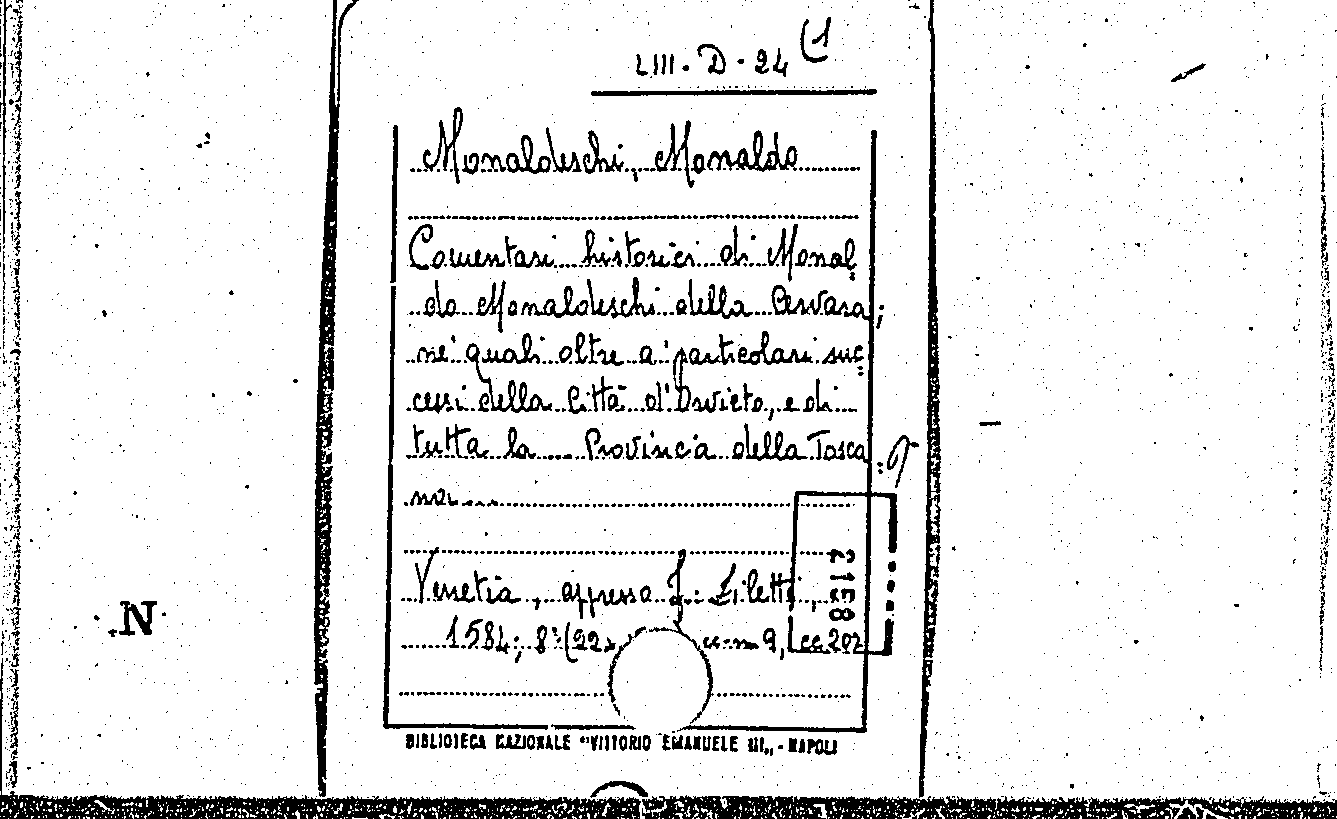 LIII. D. 24 (1
Monaldeschi, Monaldo
Comentari historici di Monal
do Monaldeschi della Cervara;
ne' quali oltre a' particolari suc
cessi della Città d'Orvieto, e di
tutta la ... Provincia della Tosca
na....
2158
Venetia, appresso F. Ziletti,
1584; 8°(22 9, cc 202
N
BIBLIOTECA NAZIONALE "VITTORIO EMANUELE III„ - NAPOLI